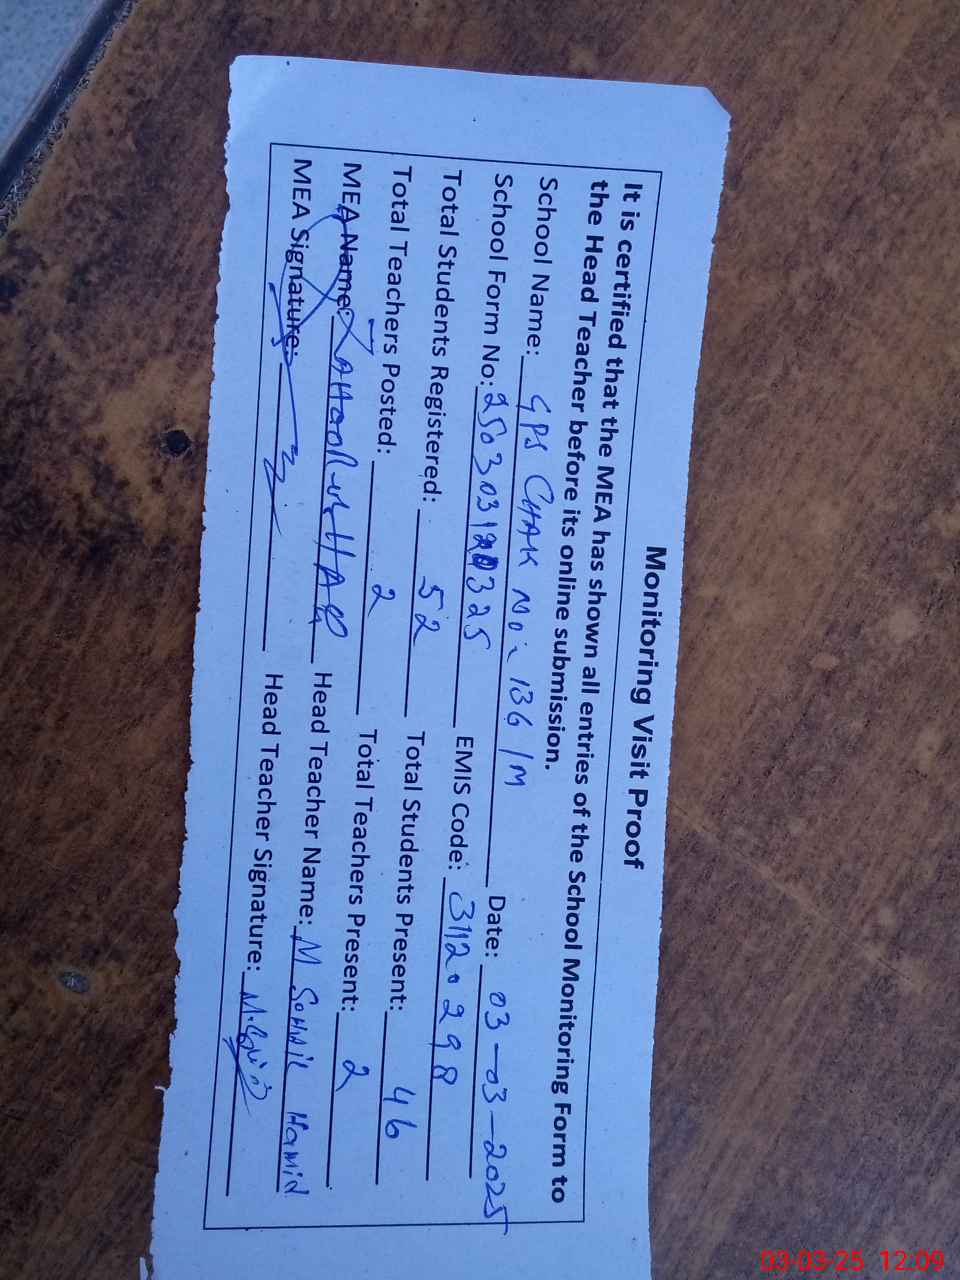 Monitoring Visit Proof
It is certified that the MEA has shown all entries of the School Monitoring Form to
the Head Teacher before its online submission.
School Name: GPS CHAK No: 136/M Date: 03-03-2025
School Form No: EMIS Code: 31120298
Total Students Registered: 52 Total Students Present: 46
Total Teachers Posted: 2 Total Teachers Present: 2
MEA Name: ZAHOOR-UL-HAQ Head Teacher Name: M Sohail Hamid
MEA Signature: Head Teacher Signature:
03-03-25 12:09